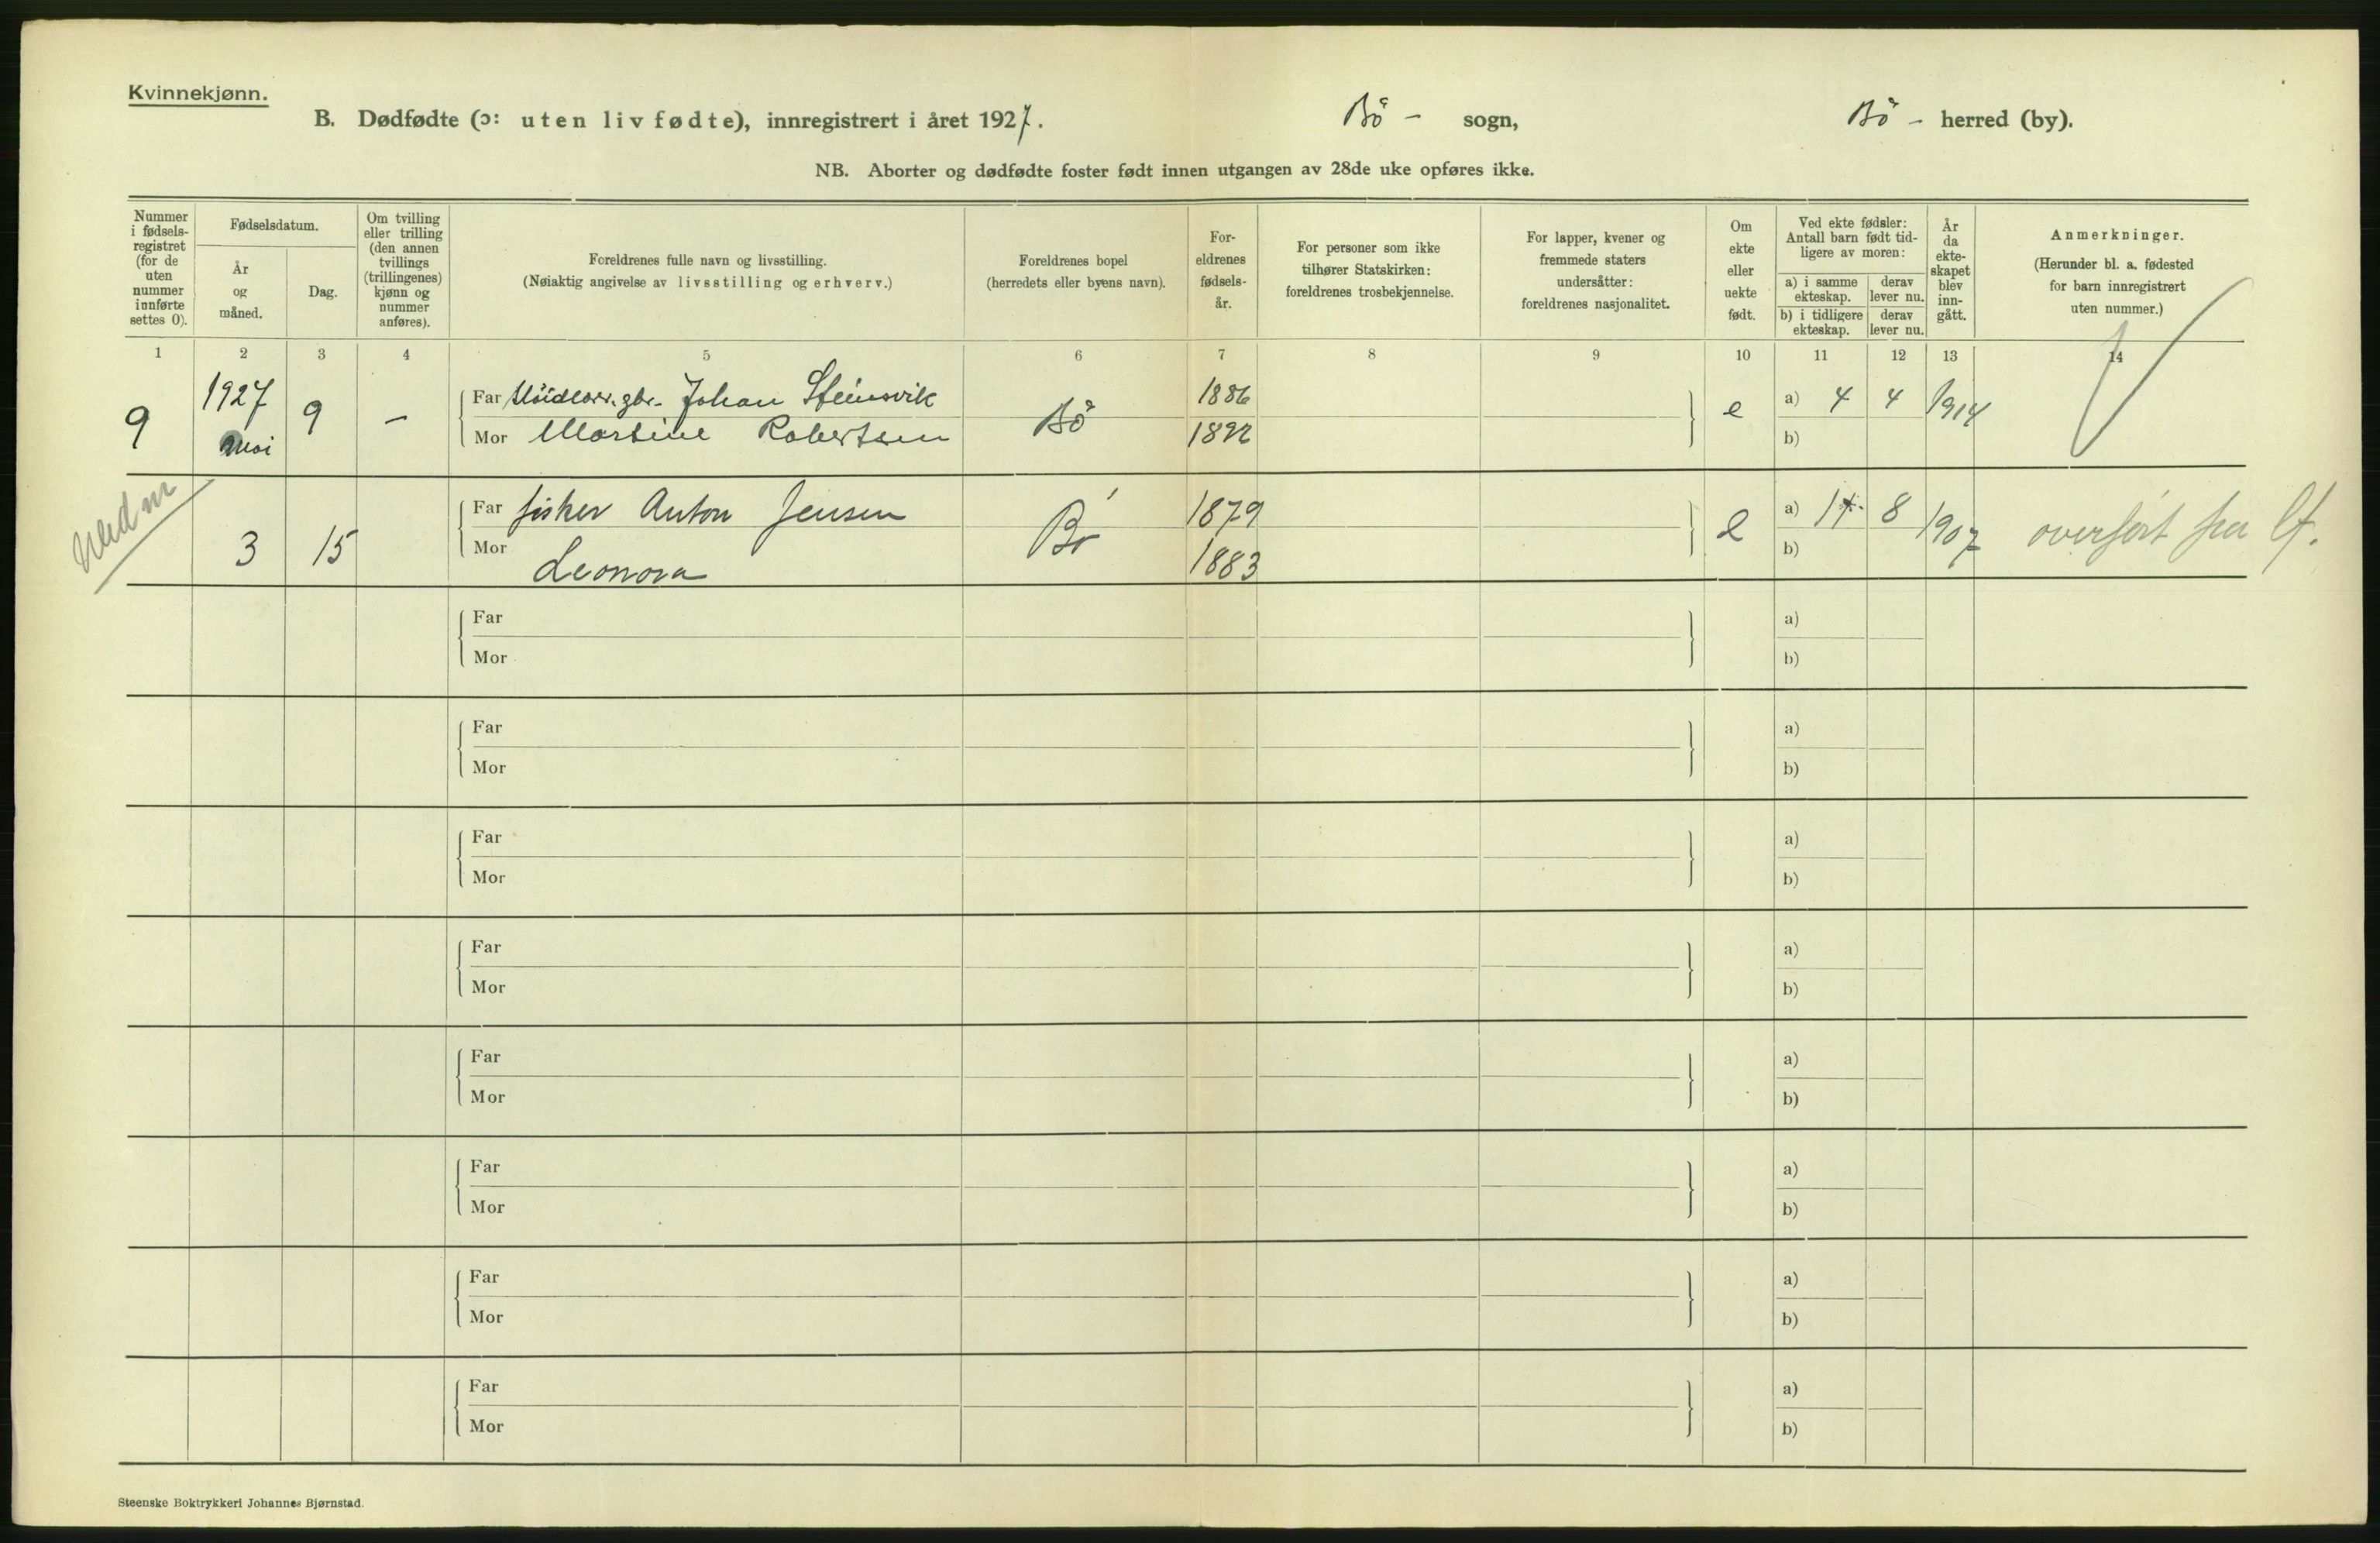 Kvinnekjønn.
B. Dødfødte (ɔ: uten liv fødte), innregistrert i året 1927. Bö - sogn, Bö - herred (by).
NB. Aborter og dødfødte foster født innen utgangen av 28de uke opføres ikke.
Nummer i fødsels-registret (for de uten nummer innførte settes 0).
Fødselsdatum.
År og måned.
Dag.
Om tvilling eller trilling (den annen tvillings (trillingenes) kjønn og nummer anføres).
Foreldrenes fulle navn og livsstilling.
(Nøiaktig angivelse av livsstilling og erhverv.)
Foreldrenes bopel
(herredets eller byens navn).
For-eldrenes fødsels-år.
For personer som ikke tilhører Statskirken: foreldrenes trosbekjennelse.
For lapper, kvener og fremmede staters undersåtter: foreldrenes nasjonalitet.
Om ekte eller uekte født.
Ved ekte fødsler: Antall barn født tid-ligere av moren:
a) i samme ekteskap.
derav lever nu.
b) i tidligere ekteskap.
derav lever nu.
År da ekte-skapet blev inn-gått.
Anmerkninger.
(Herunder bl. a. fødested for barn innregistrert uten nummer.)
1 2 3 4 5 6 7 8 9 10 11 12 13 14
9 1927 Mai 9 - Far gbr. Johan Steinsvik Bö 1886 e a) 4 4 1914
Mor Martine Robertsen 1892 b)
3 15 Far fisker Anton Jensen Bö 1879 e a) 8 1907 overført fra lf.
Mor Leonora 1883 b)
Far a)
Mor b)
Far a)
Mor b)
Far a)
Mor b)
Far a)
Mor b)
Far a)
Mor b)
Far a)
Mor b)
Far a)
Mor b)
Far a)
Mor b)
Steenske Boktrykkeri Johannes Bjørnstad.